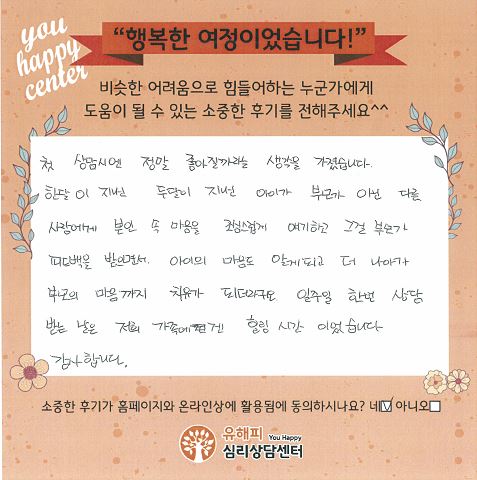 you
happy
center
“행복한 여정이었습니다!”
비슷한 어려움으로 힘들어하는 누군가에게
도움이 될 수 있는 소중한 후기를 전해주세요^^
첫 상담시엔 정말 좋아질까라는 생각을 가졌습니다.
한달이 지나선 두달이 지나선 아이가 부모가 아닌 다른
사람에게 본인 속 마음을 조심스럽게 얘기하고 그걸 부모가
피드백을 받으면서. 아이의 마음도 알게되고 더 나아가
부모의 마음까지 치유가 되더라구요 일주일 한번 상담
받는 날은 저희 가족에겐 힐링 시간 이었습니다
감사합니다.
소중한 후기가 홈페이지와 온라인상에 활용됨에 동의하시나요? 네☑ 아니오☐
유해피 You Happy
심리상담센터